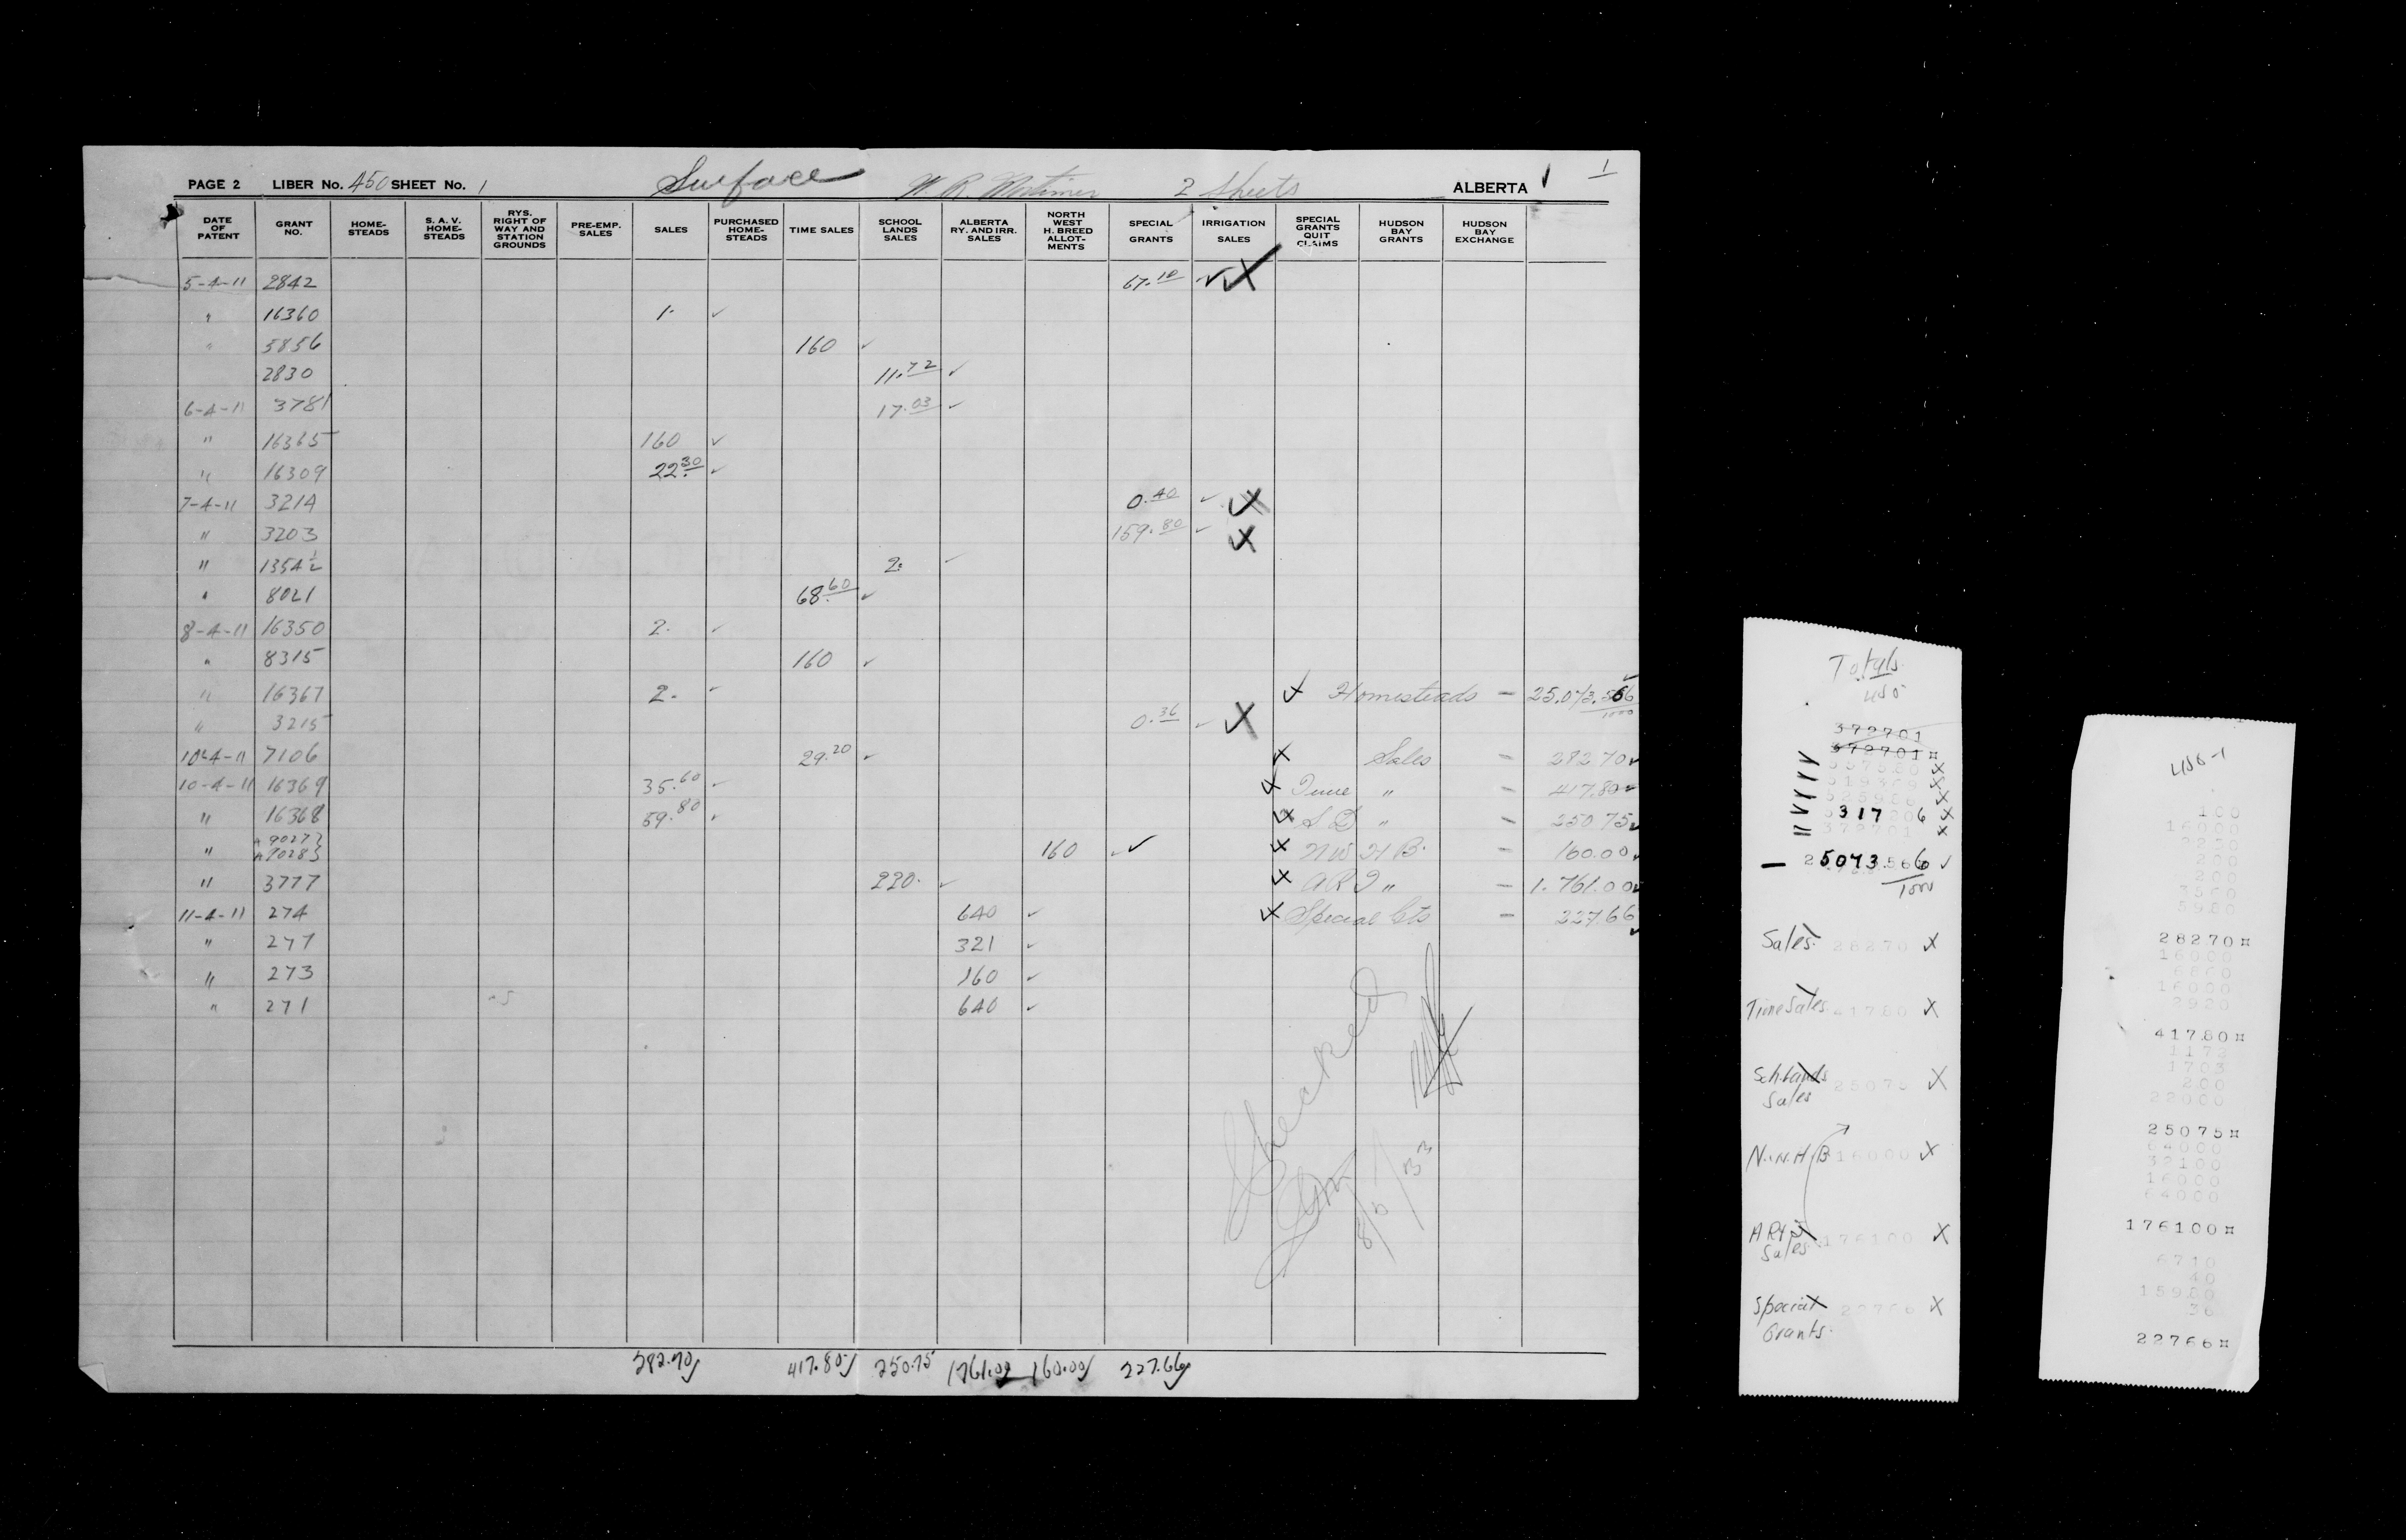 PAGE 2 LIBER No. 450 SHEET No. 1 Surface W. R. Mortimer 2 Sheets ALBERTA 1
DATE OF PATENT GRANT NO. HOME-STEADS S. A. V. HOME-STEADS RYS. RIGHT OF WAY AND STATION GROUNDS PRE-EMP. SALES SALES PURCHASED HOME-STEADS TIME SALES SCHOOL LANDS SALES ALBERTA RY. AND IRR. SALES NORTH WEST H. BREED ALLOT-MENTS SPECIAL GRANTS IRRIGATION SALES SPECIAL GRANTS QUIT CLAIMS HUDSON BAY GRANTS HUDSON BAY EXCHANGE
5-4-11 2842 67.10 ✓ X
" 16360 1. ✓
" 5856 160 ✓
2830 11.72 ✓
6-4-11 3781 17.03 ✓
" 16365 160 ✓
" 16309 22.30 ✓
7-4-11 3214 0.40 ✓ X
" 3203 159.80 ✓ X
" 1354½ 2. ✓
" 8021 68.60 ✓
8-4-11 16350 2. ✓
" 8315 160 ✓
" 16367 2. ✓ X Homesteads - 25.073.566/1000 ✓
" 3215 0.36 ✓ X
10-4-11 7106 29.20 ✓ X Sales - 282.70 ✓
10-4-11 16369 35.60 ✓ X Time " - 417.80 ✓
" 16368 59.80 ✓ X S L " - 250.75 ✓
" 90272 90283 160 ✓ X N W H B. - 160.00 ✓
" 3777 220. ✓ X A R I " - 1.761.00 ✓
11-4-11 274 640 ✓ X Special Gts - 227.66 ✓
" 277 321 ✓
" 273 160 ✓
" 271 640 ✓
Checked
8/5/33
282.70 417.80 250.75 1761.00 160.00 227.66
Totals
450
372701
372701
317 6
372701
25073.566 ✓
1000
Sales 28270 X
Time Sales 41780 X
Sch Lands 25075 X
Sales
N.W.H.B 16000 X
A Ry I 176100 X
Sales
Special 22766 X
Grants.
450-1
100
16000
2230
200
200
3560
5980
28270
16000
6860
16000
2920
41780
1172
1703
200
22000
25075
64000
32100
16000
64000
176100
6710
40
15980
36
22766